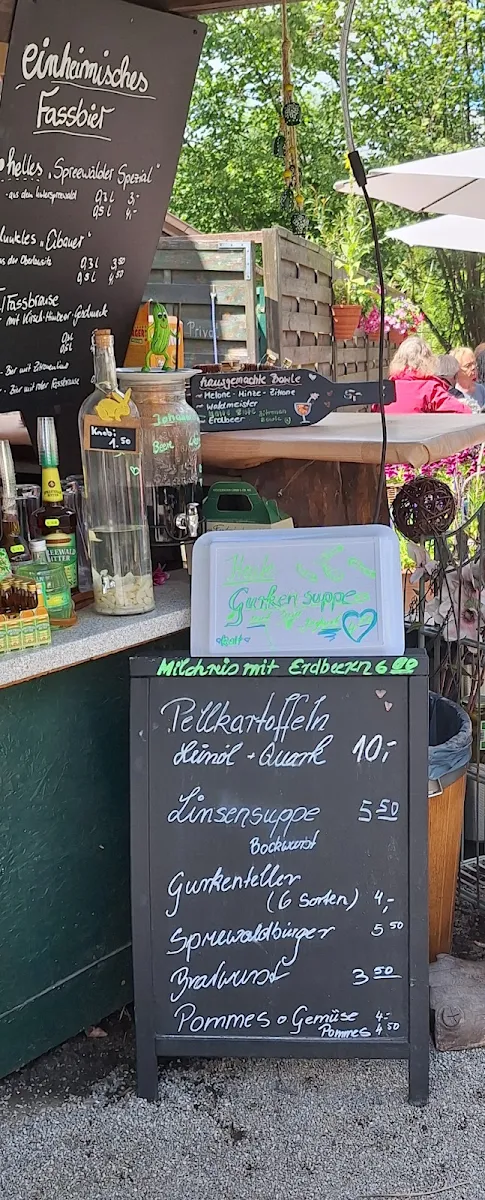 einheimisches
Fassbier
helles "Spreewälder Spezial"
- aus dem Unterspreewald 0,3 L 3,-
0,5 L 4,-
dunkles "Eibauer"
aus der Oberlausitz 0,3 L 3,50
0,5 L 4,50
Fassbrause
mit Kirsch-Himbeer Geschmack
0,3 L
0,5 L
- Bier mit Zitronenlimo
- Bier mit roter Fassbrause
Priv
hausgemachte Bowle
- Melone - Minze - Zitrone
- Waldmeister
- Erdbeer
Knobi
1.50
Gurkensuppe
Milchreis mit Erdbeern 6 00
Pellkartoffeln
Leinöl + Quark 10,-
Linsensuppe 5 50
Bockwurst
Gurkenteller
(6 Sorten) 4,-
Spreewaldbürger 5 50
Bratwurst 3 50
Pommes o Gemüse 4,-
Pommes 4,50